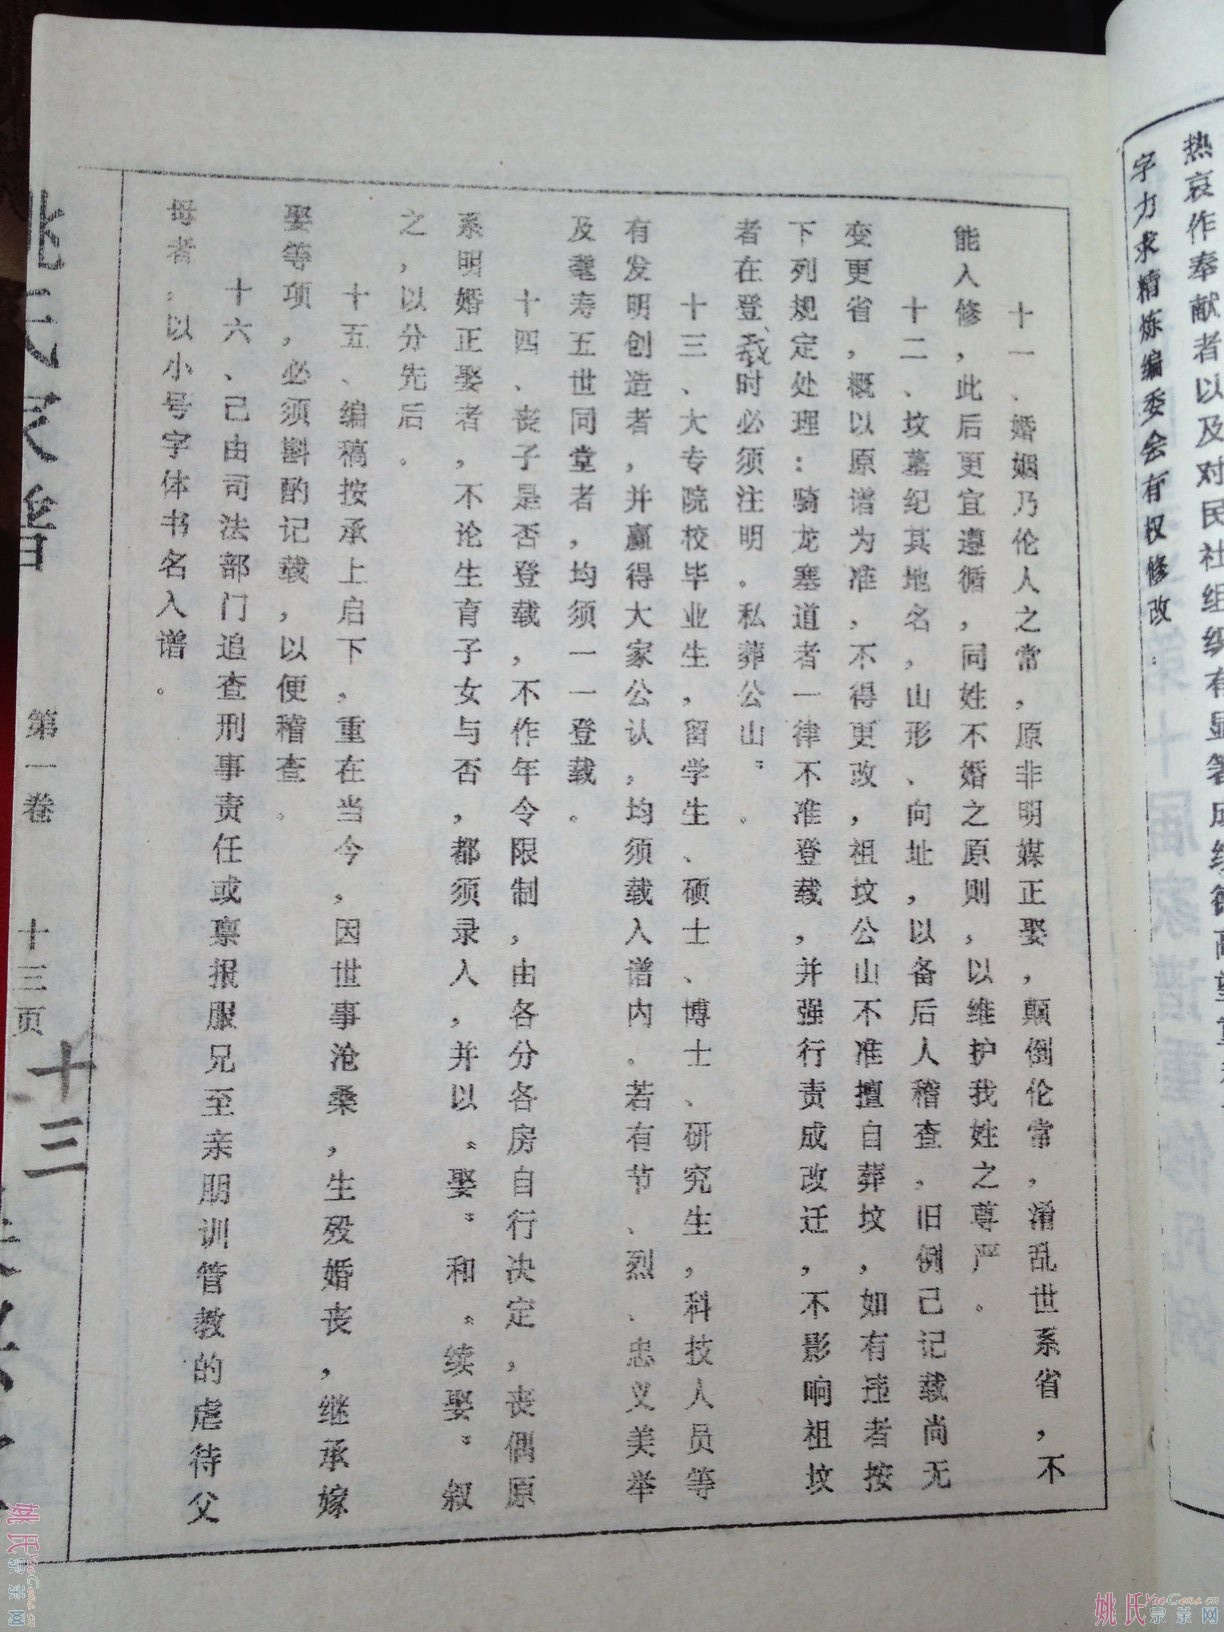 热哀作奉献者以及对民社组织有显著成绩德高望重
字力求精炼编委会有权修改。
十一、婚姻乃伦人之常，原非明媒正娶，颠倒伦常，淆乱世系省，不
能入修，此后更宜遵循，同姓不婚之原则，以维护我姓之尊严。
十二、坟墓纪其地名，山形、向址，以备后人稽查，旧例己记载尚无
变更省，概以原谱为准，不得更改，祖坟公山不准擅自葬坟，如有违者按
下列规定处理：骑龙塞道者一律不准登载，并强行责成改迁，不影响祖坟
者在登载时必须注明。私葬公山〞。
十三、大专院校毕业生，留学生、硕士、博士、研究生，科技人员等
有发明创造者，并赢得大家公认，均须载入谱内。若有节、烈、忠义美举
及耄寿五世同堂者，均须一一登载。
十四、丧子是否登载，不作年令限制，由各分各房自行决定，丧偶原
系明婚正娶者，不论生育子女与否，都须录入，并以〝娶〞和〝续娶〞叙
之，以分先后。
十五、编稿按承上启下，重在当今，因世事沧桑，生殁婚丧，继承嫁
娶等项，必须斟酌记载，以便稽查。
十六、己由司法部门追查刑事责任或禀报服兄至亲朋训管教的虐待父
母者，以小号字体书名入谱。
姚氏家谱 第一卷 十三页
十三
姚氏YaoGens.cn
宗亲网
姚氏YaoGens.cn
宗亲网